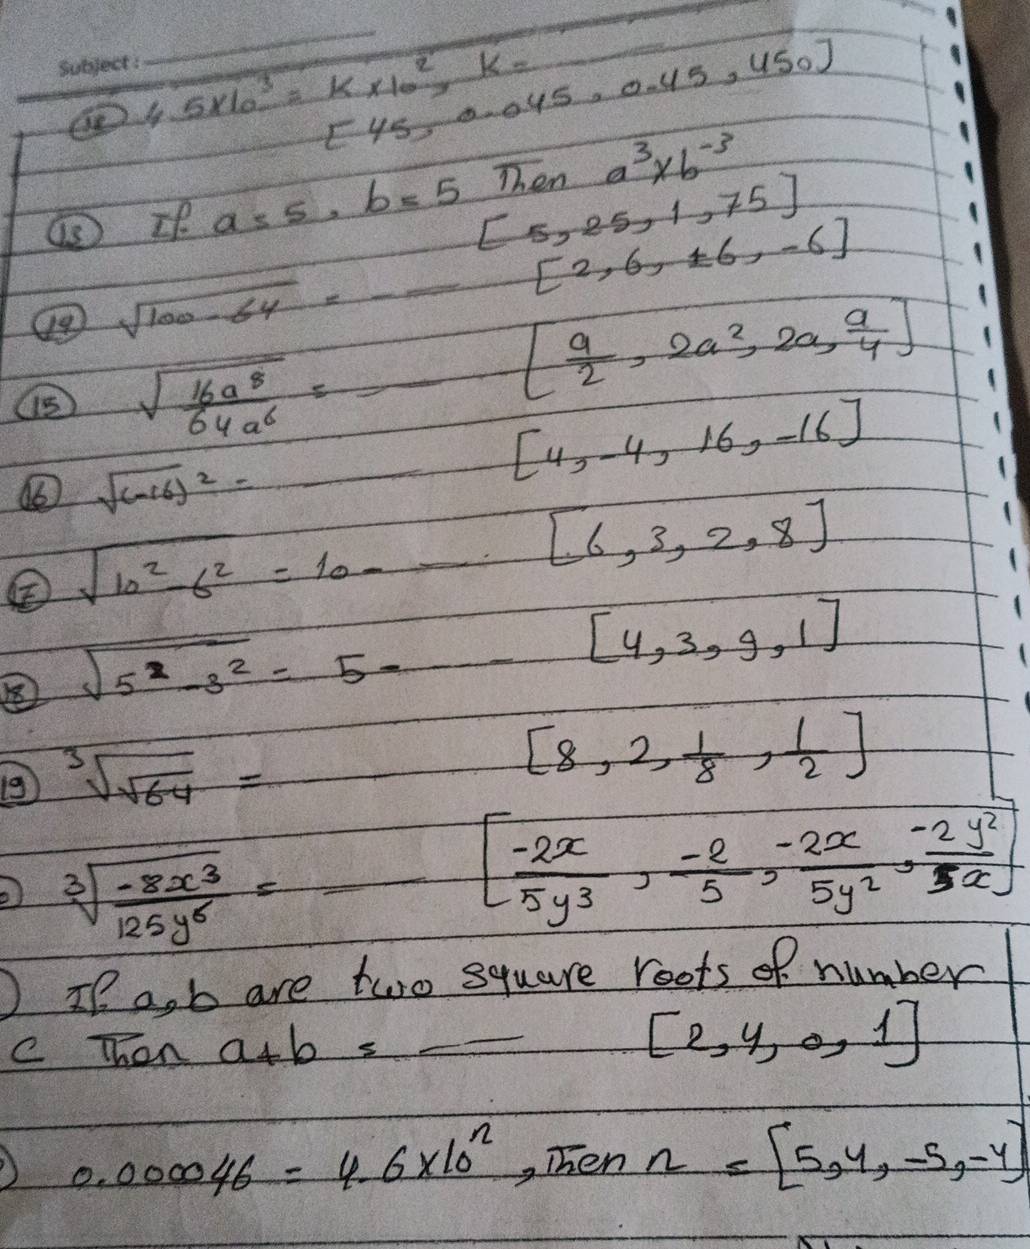 Subject:
(12) 4.5x10³ = K x 10², K =
[45, 0.045, 0.45, 450]
(13) If a = 5, b = 5 Then a³ x b⁻³
[5, 25, 1, 75]
(14) √(100-64) = [2, 6, ±6, -6]
(15) √(16a⁸/64a⁶) = [a/2, 2a², 2a, a/4]
(16) √(-16)² = [4, -4, 16, -16]
(17) √(10² - 6²) = 10 - [6, 3, 2, 8]
(18) √(5² - 3²) = 5 - [4, 3, 9, 1]
(19) ³√√64 = [8, 2, 1/8, 1/2]
³√(-8x³/125y⁶) = [-2x/5y³, -2/5, -2x/5y², -2y²/5x]
If a,b are two square roots of number
c Then a+b = [2, 4, 0, 1]
0.000046 = 4.6x10ⁿ, Then n = [5, 4, -5, -4]